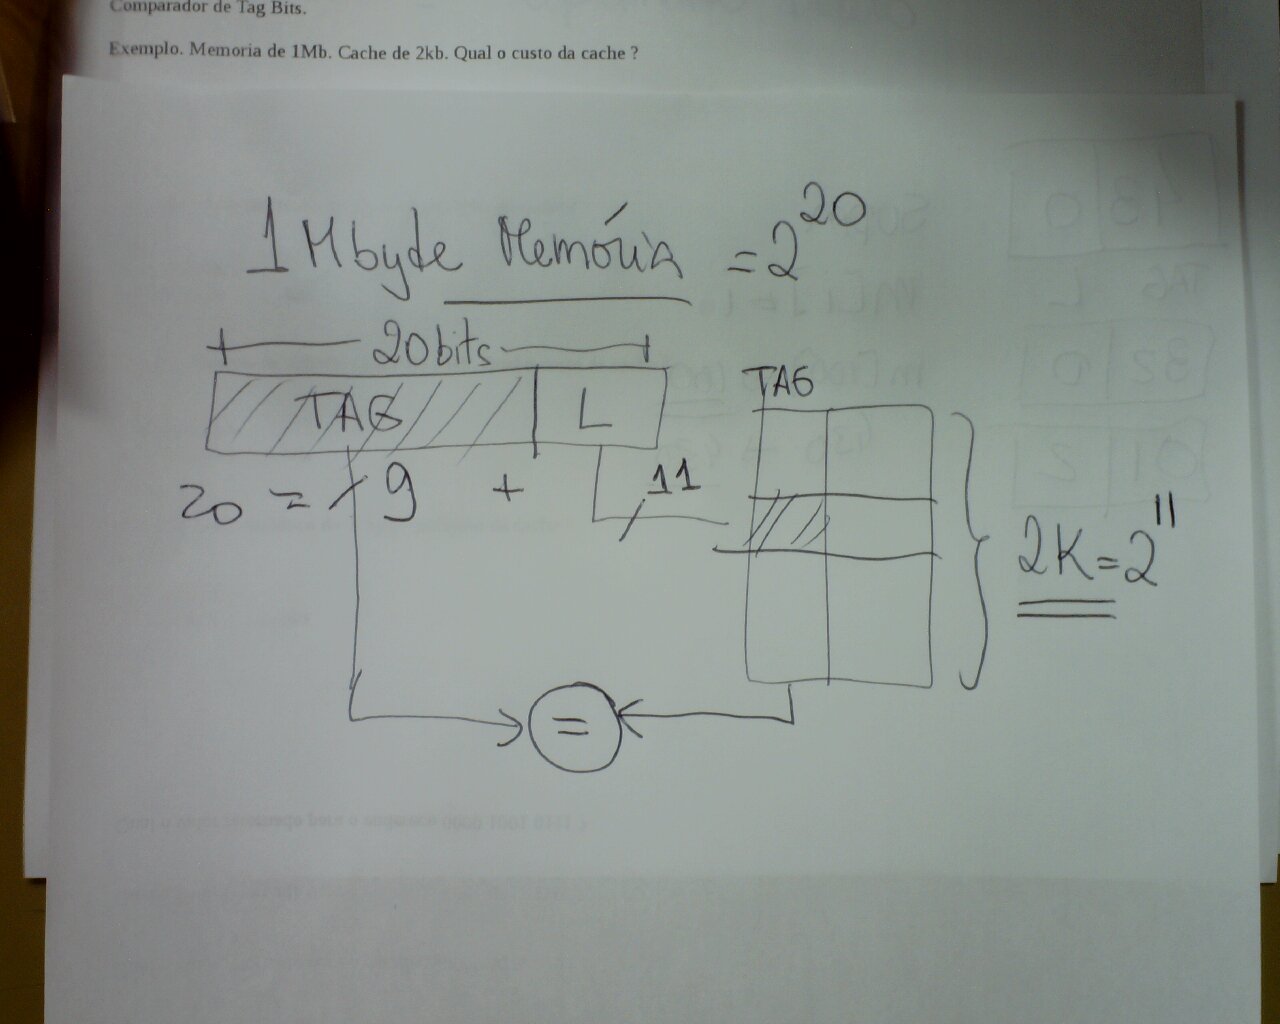 Comparador de Tag Bits.
Exemplo. Memoria de 1Mb. Cache de 2kb. Qual o custo da cache ?
1 Mbyde Memória = 2^20
20 bits
TAG L
TAG
20 = 9 + 11
2K = 2^11
=